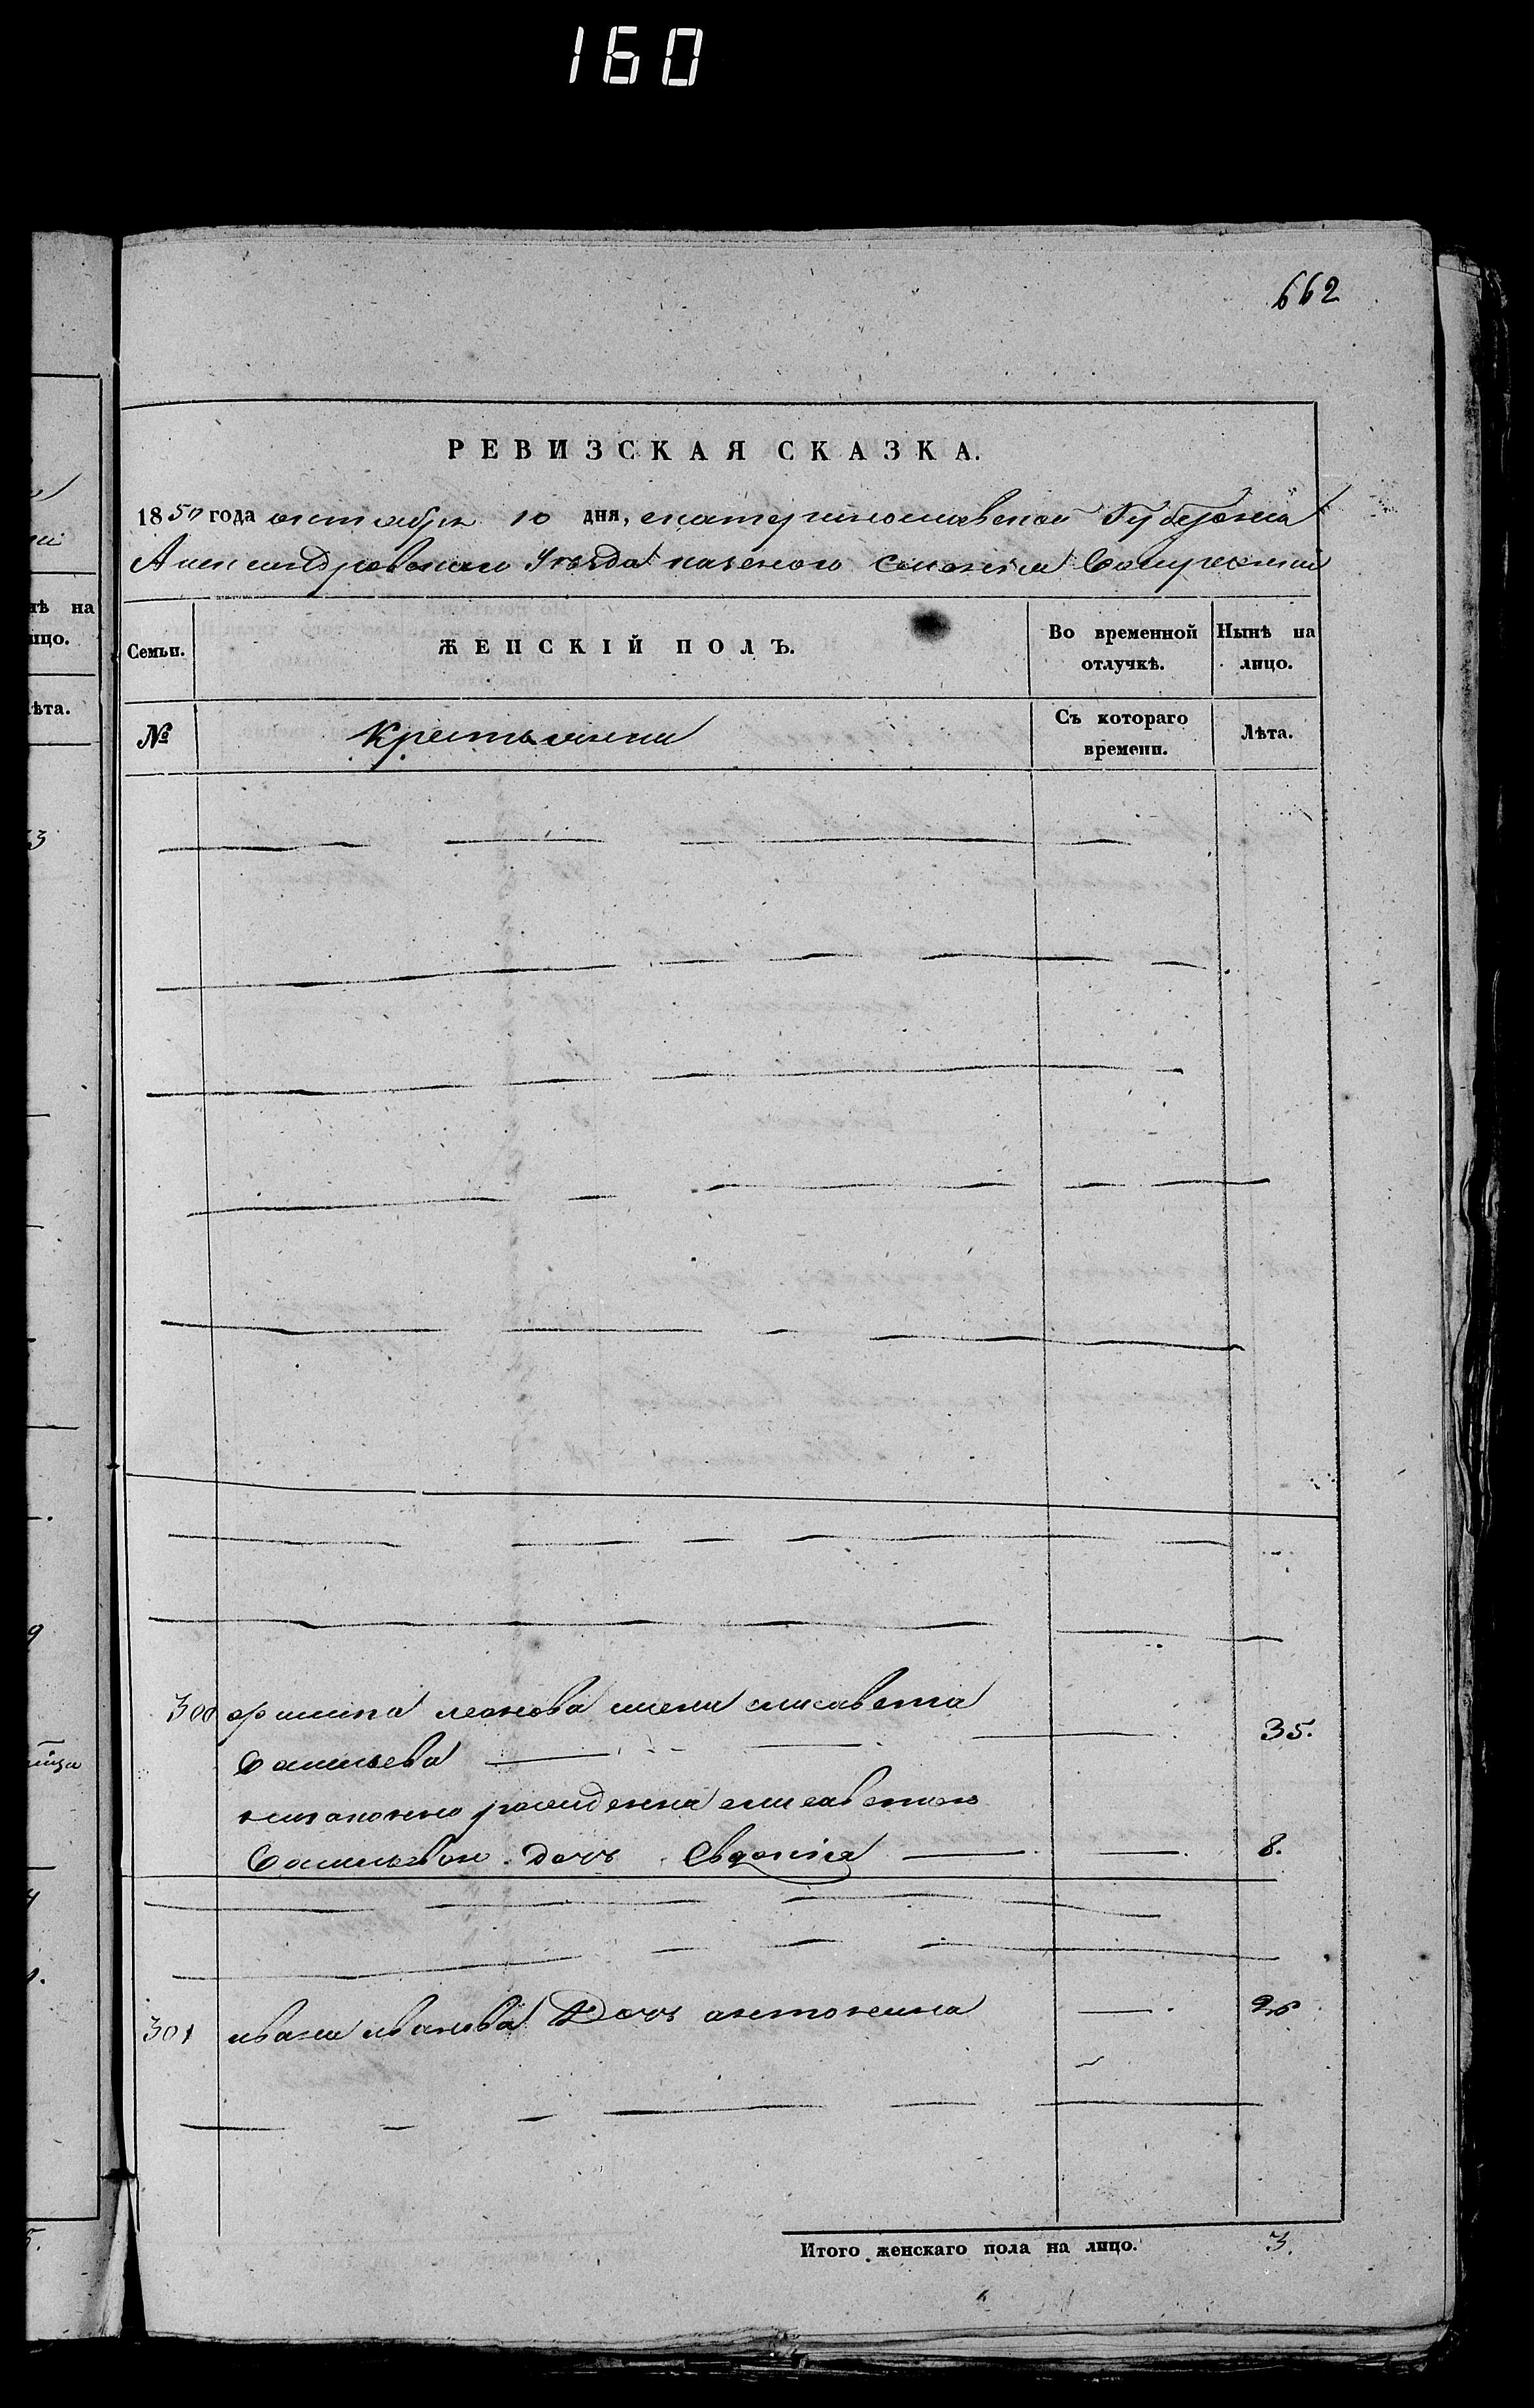 160
662
РЕВИЗСКАЯ СКАЗКА.
1850 года октября 10 дня, екатеринославской Губернии
Александровскаго Уезда казеного селения
Семьи.
ЖЕНСКІЙ ПОЛЪ.
Во временной отлучкѣ.
Нынѣ на лицо.
№
Крестьянки
Съ котораго времени.
Лѣта.
300 жена елисавета
Васильева 35.
рожденна елисаветою
Васильевою Дочь Евдокія 8.
301 ивана иванова Дочь антонина
Итого женскаго пола на лицо. 3.
нѣ на
лицо.
Лѣта.